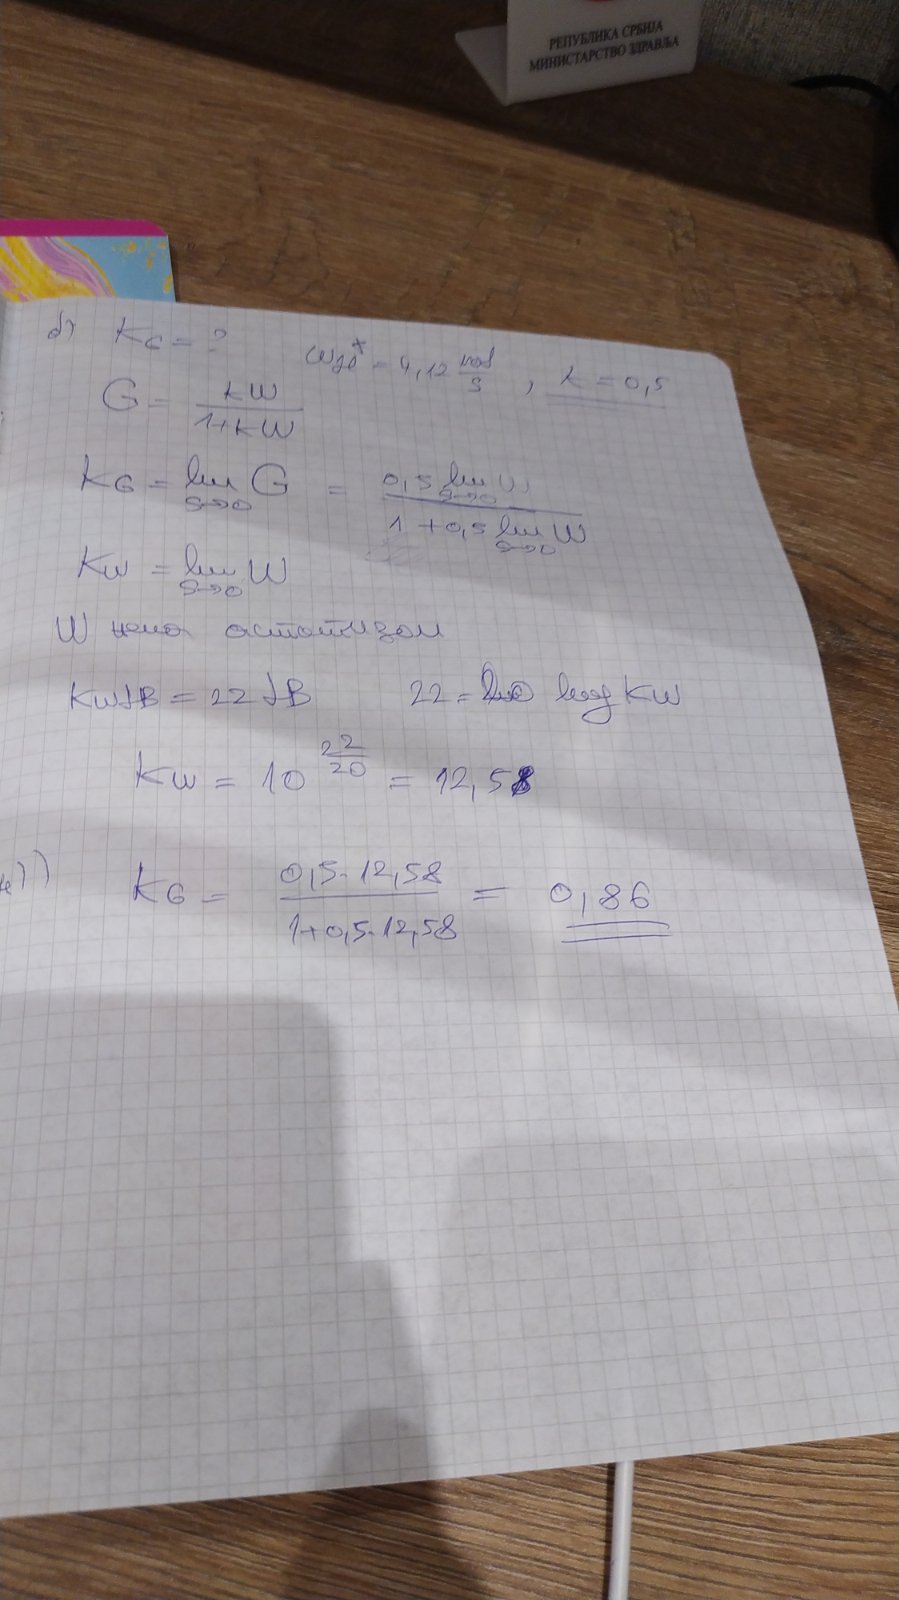 РЕПУБЛИКА СРБИЈА
МИНИСТАРСТВО ЗДРАВЉА
б) KG = ? , k = 0,5
G = kW / (1+kW)
KG = lim s→0 G = 0,5 lim s→0 W / (1 + 0,5 lim s→0 W)
KW = lim s→0 W
W нема астатизам
KWdB = 22 dB 22 = 20 log KW
KW = 10^(22/20) = 12,58
KG = 0,5·12,58 / (1+0,5·12,58) = 0,86